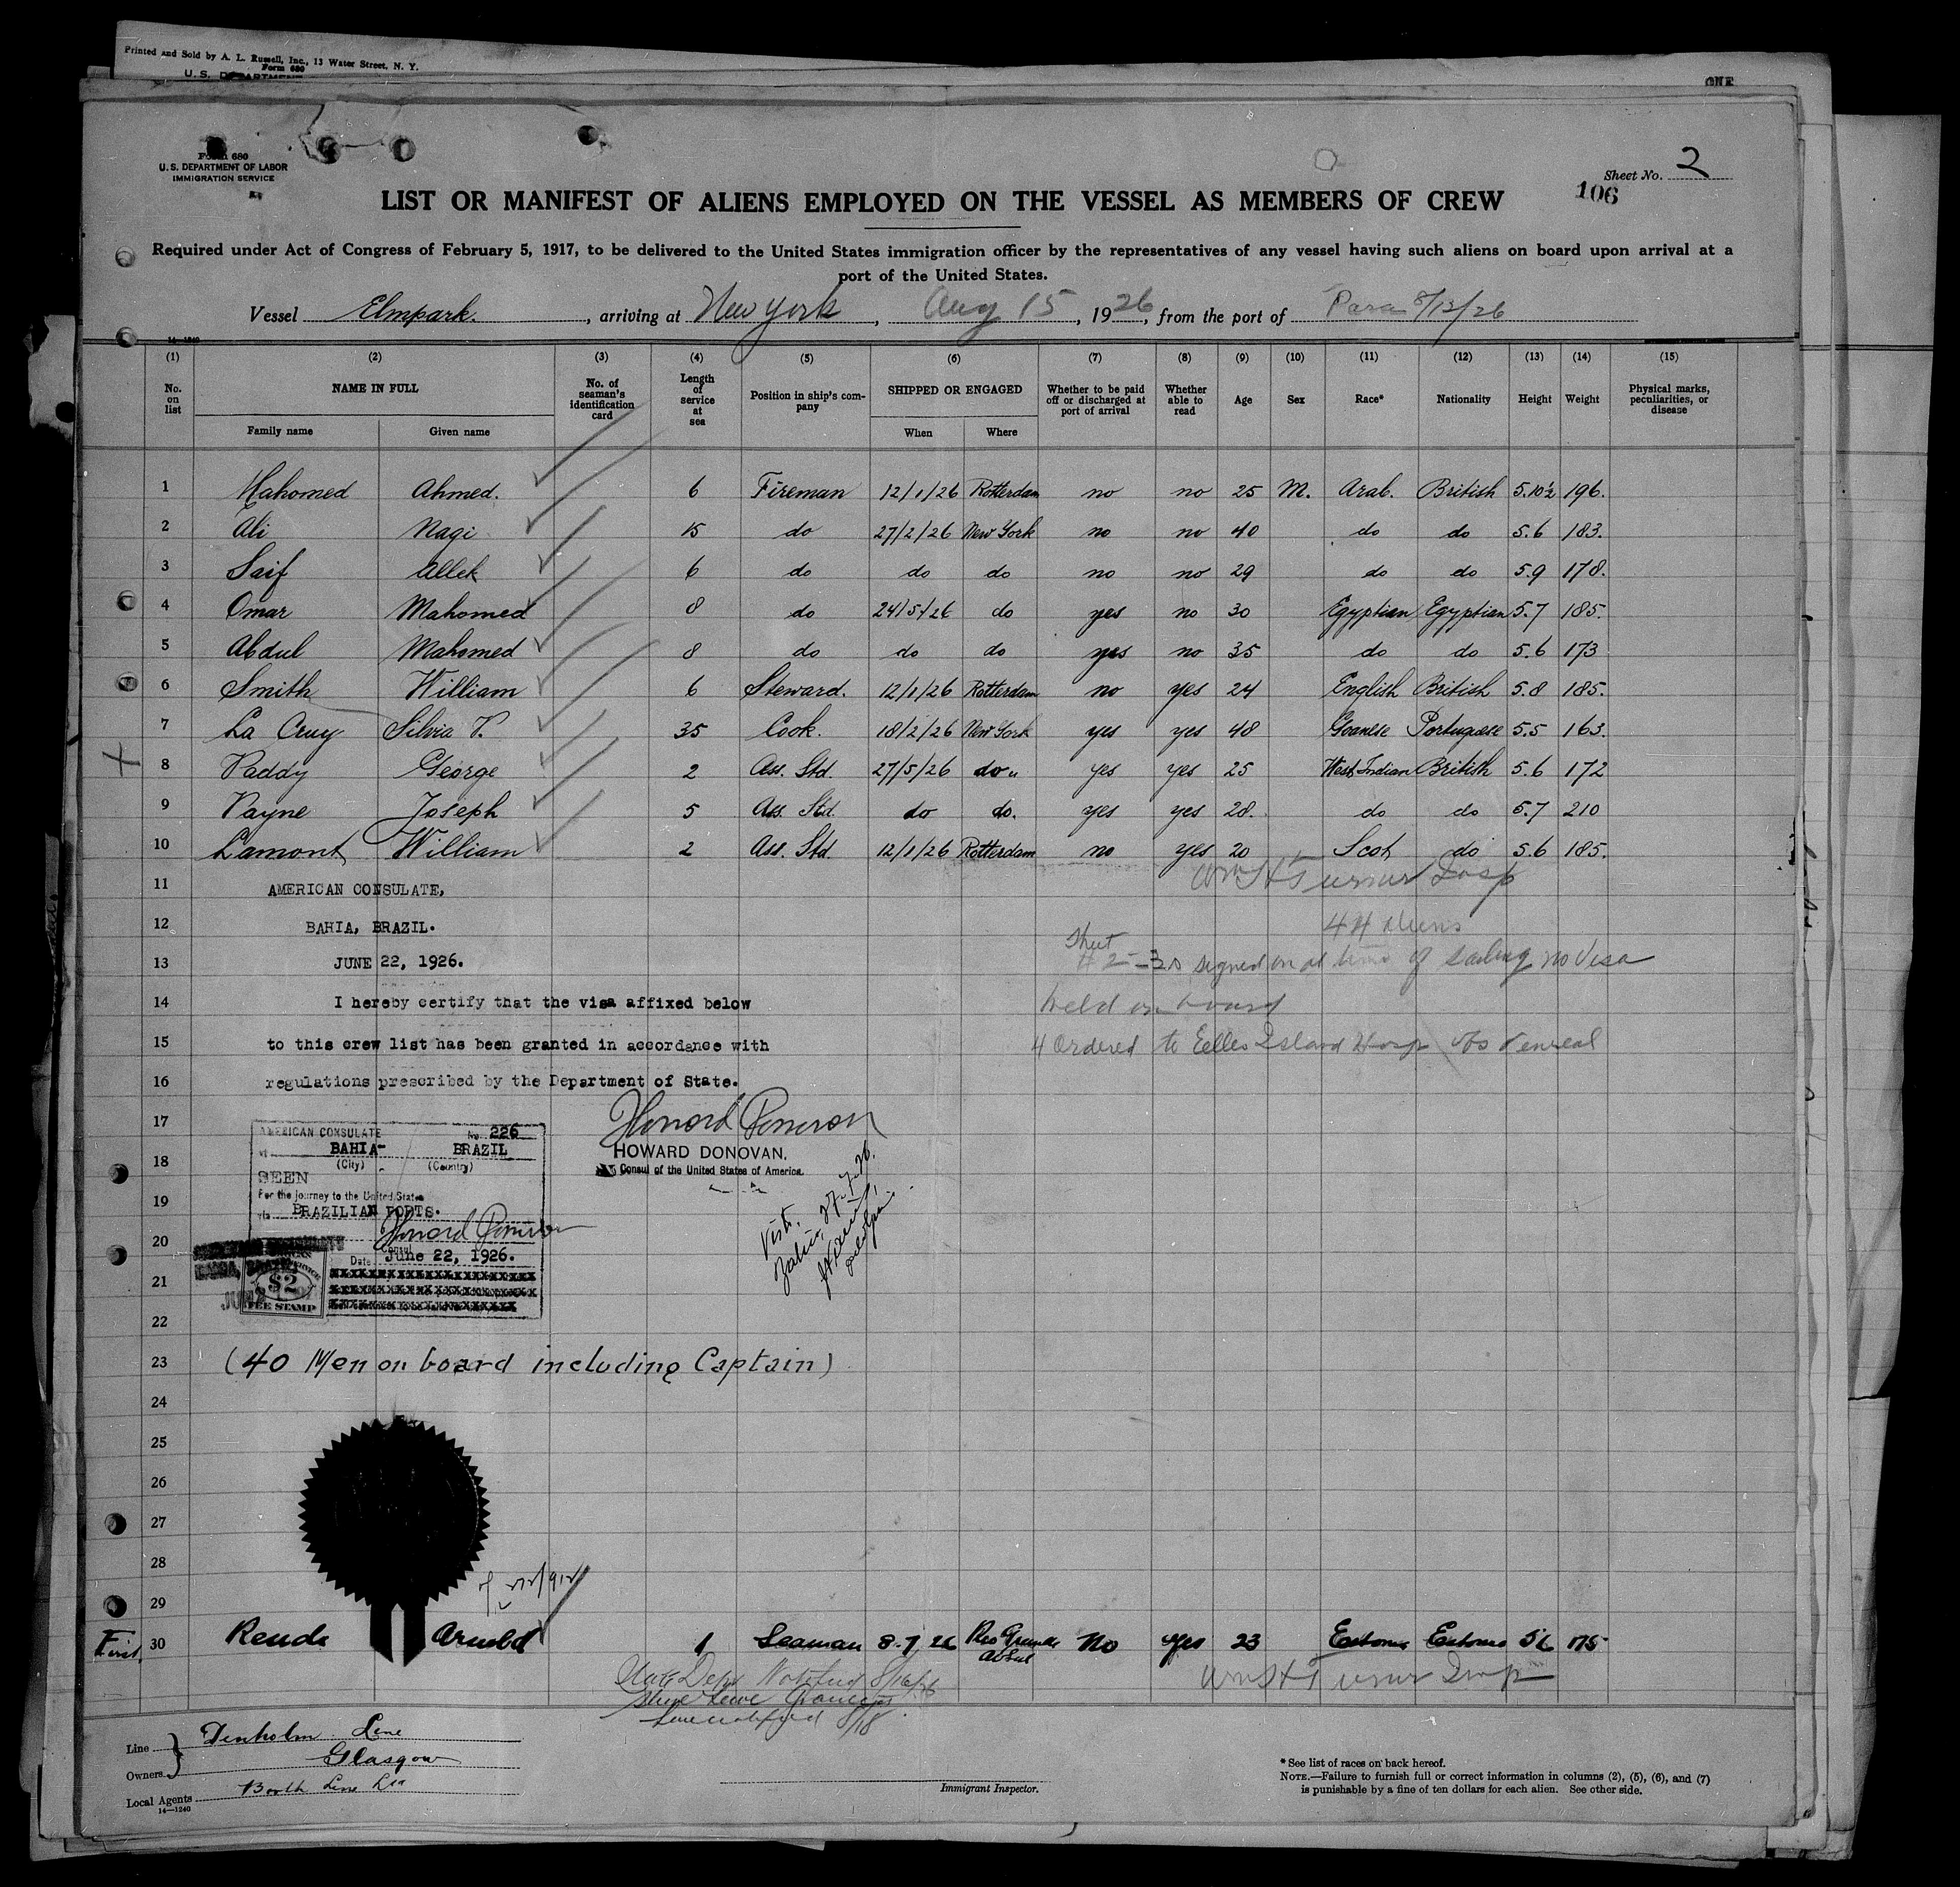 Printed and Sold by A. L. Russell, Inc., 13 Water Street, N. Y.
Form 680
U. S. DEPARTMENT
Form 680
U. S. DEPARTMENT OF LABOR
IMMIGRATION SERVICE
Sheet No. 2
106
LIST OR MANIFEST OF ALIENS EMPLOYED ON THE VESSEL AS MEMBERS OF CREW
Required under Act of Congress of February 5, 1917, to be delivered to the United States immigration officer by the representatives of any vessel having such aliens on board upon arrival at a
port of the United States.
Vessel Elmpark. , arriving at New York , Aug 15 , 1926, from the port of Para 8/12/26
14—1240
(1) (2) (3) (4) (5) (6) (7) (8) (9) (10) (11) (12) (13) (14) (15)
No. on list NAME IN FULL No. of seaman's identification card Length of service at sea Position in ship's company SHIPPED OR ENGAGED Whether to be paid off or discharged at port of arrival Whether able to read Age Sex Race* Nationality Height Weight Physical marks, peculiarities, or disease
Family name Given name When Where
1 Mahomed Ahmed. 6 Fireman 12/1/26 Rotterdam no no 25 M. Arab. British 5.10½ 196.
2 Ali Nagi 15 do 27/2/26 New York no no 40 do do 5.6 183.
3 Saif Allek 6 do do do no no 29 do do 5.9 178.
4 Omar Mahomed 8 do 24/5/26 do yes no 30 Egyptian Egyptian 5.7 185.
5 Abdul Mahomed 8 do do do yes no 35 do do 5.6 173
6 Smith William 6 Steward. 12/1/26 Rotterdam no yes 24 English British 5.8 185.
7 La Cruy Silvia P. 35 Cook. 18/2/26 New York yes yes 48 Goanese Portuguese 5.5 163.
8 Paddy George 2 Ass. Std. 27/5/26 do " yes yes 25 West Indian British 5.6 172
9 Payne Joseph 5 Ass. Std. do do. yes yes 28. do do 5.7 210
10 Lamont William 2 Ass. Std. 12/1/26 Rotterdam no yes 20 Scot do 5.6 185.
Wm H Turner Insp
11 AMERICAN CONSULATE,
12 BAHIA, BRAZIL.
44 Aliens
13 JUNE 22, 1926.
Sheet
#2—30 signed on at time of sailing no Visa
14 I hereby certify that the visa affixed below
held on board
15 to this crew list has been granted in accordance with
4 Ordered to Ellis Island Hosp
16 regulations prescribed by the Department of State.
17
HOWARD DONOVAN,
Consul of the United States of America.
AMERICAN CONSULATE No. 226
at BAHIA- BRAZIL
(City) (Country)
18
SEEN
For the journey to the United States
19
via BRAZILIAN PORTS.
20
Consul
Date June 22, 1926.
21
$2
FEE STAMP
22
23 (40 Men on board including Captain)
24
25
26
27
28
29
First 30 Arnold 1 Seaman 8.7.26 Rio Grande No yes 23 5'6 175
Wm H Turner Insp
Line
Denholm Line
Owners
Glasgow
Local Agents Booth Line
14—1240
Immigrant Inspector.
* See list of races on back hereof.
NOTE.—Failure to furnish full or correct information in columns (2), (5), (6), and (7)
is punishable by a fine of ten dollars for each alien. See other side.